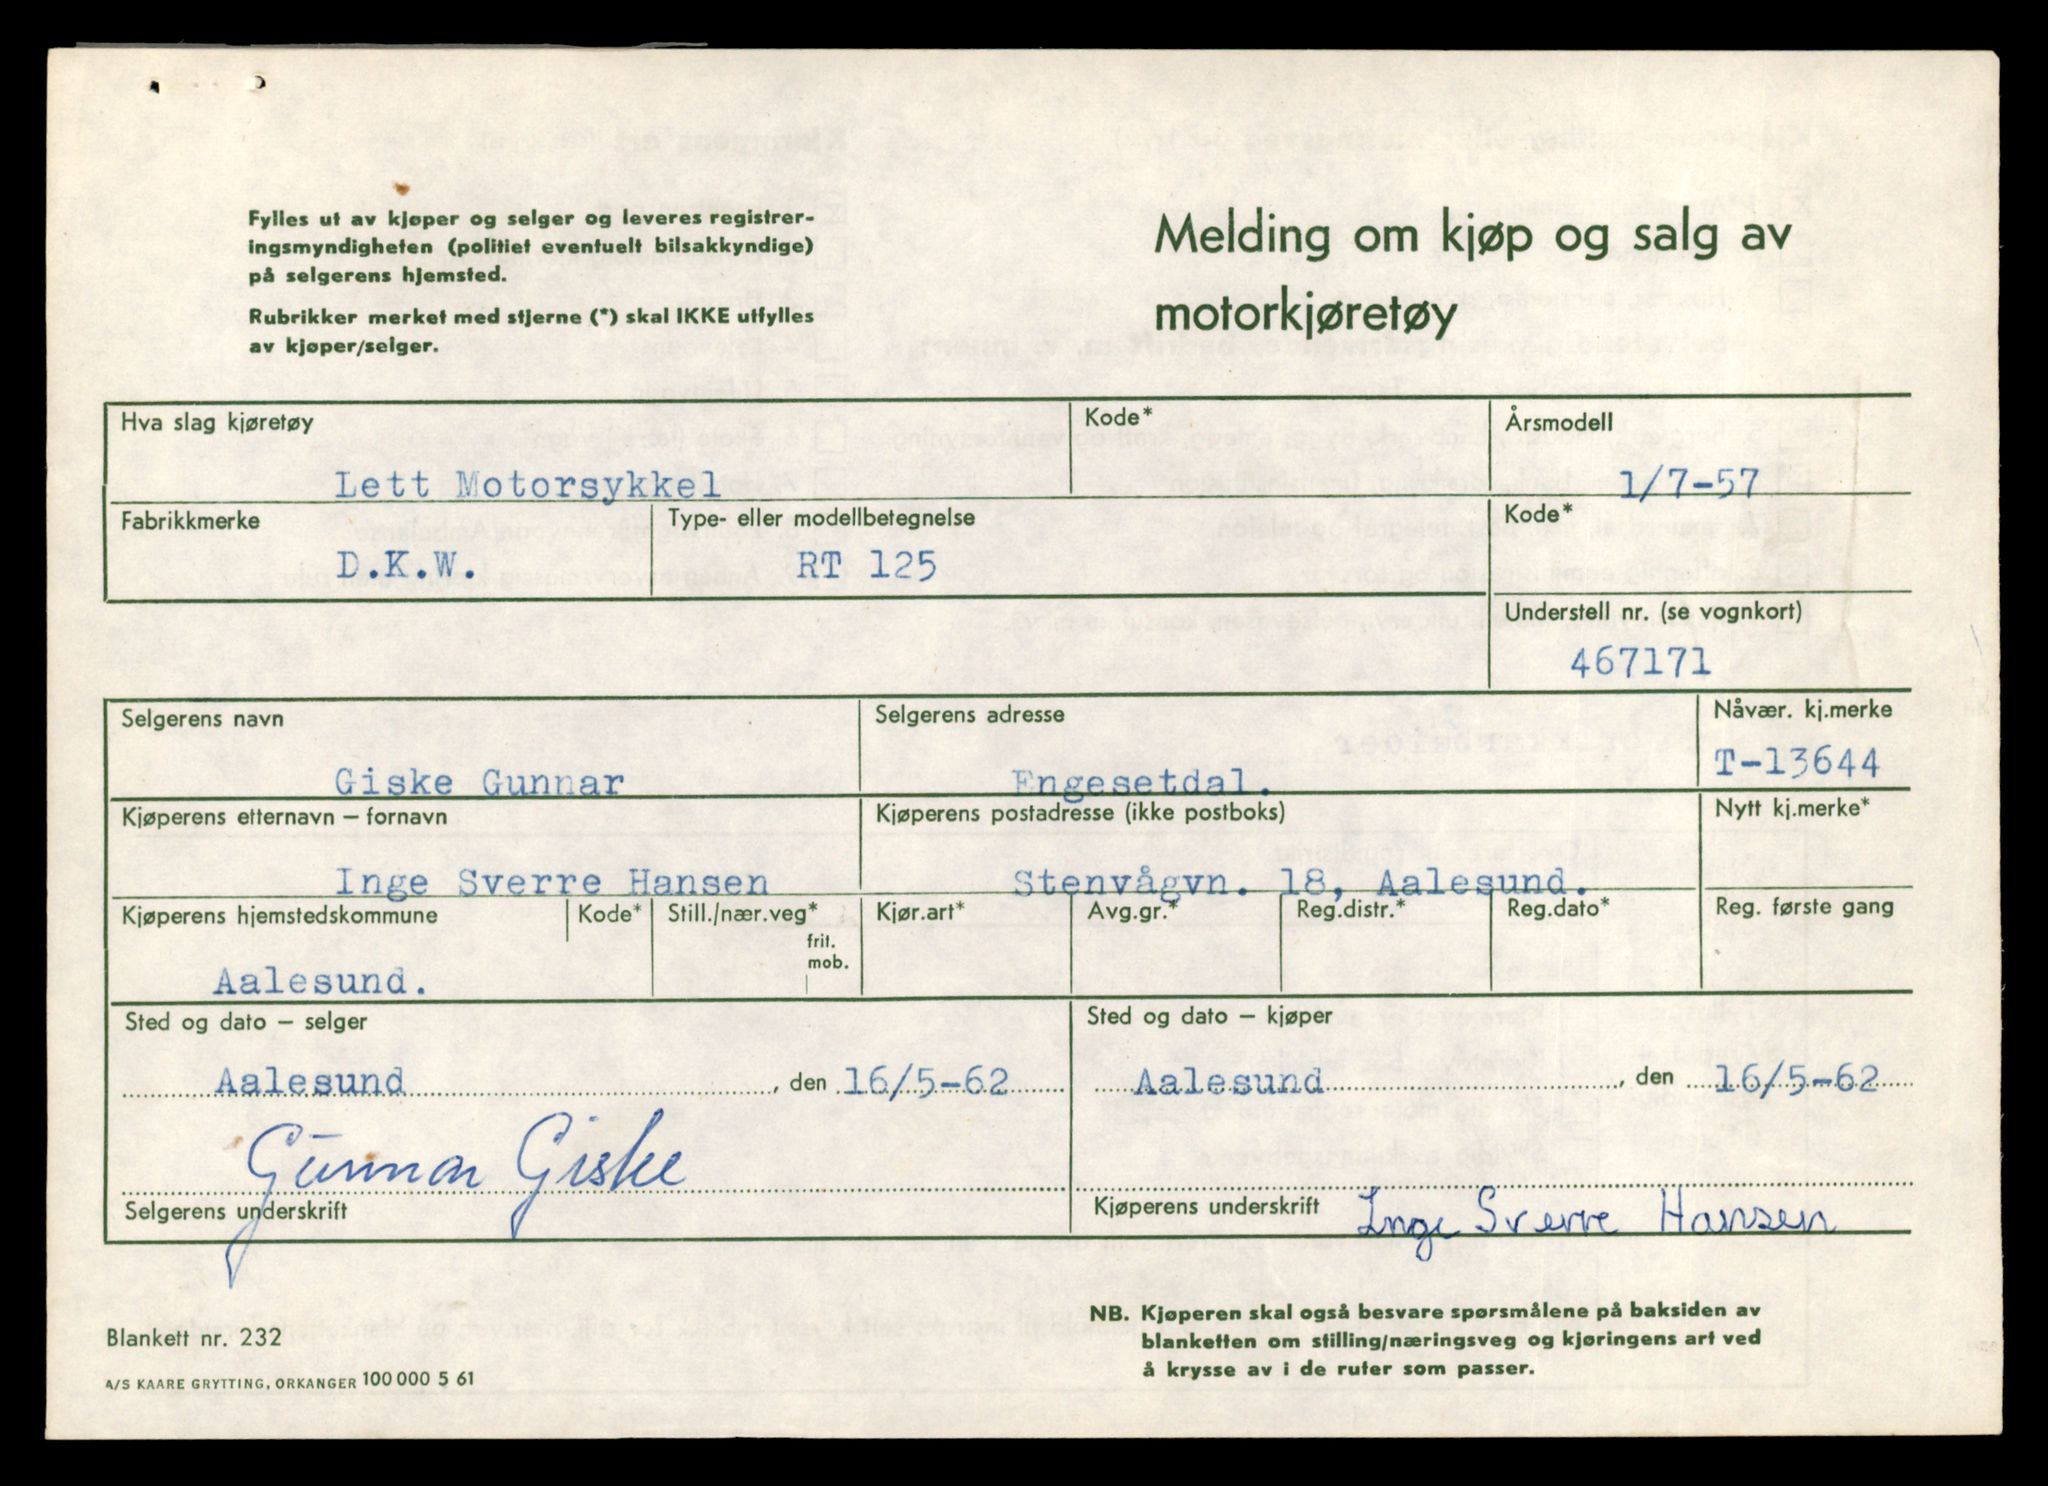 Fylles ut av kjøper og selger og leveres registrer-
ingsmyndigheten (politiet eventuelt bilsakkyndige)
på selgerens hjemsted.
Rubrikker merket med stjerne (*) skal IKKE utfylles
av kjøper/selger.
Melding om kjøp og salg av
motorkjøretøy
Hva slag kjøretøy
Kode*
Årsmodell
Lett Motorsykkel
1/7-57
Fabrikkmerke
Type- eller modellbetegnelse
Kode*
D.K.W.
RT 125
Understell nr. (se vognkort)
467171
Selgerens navn
Selgerens adresse
Nåvær. kj.merke
Giske Gunnar
Engesetdal.
T-13644
Kjøperens etternavn – fornavn
Kjøperens postadresse (ikke postboks)
Nytt kj.merke*
Inge Sverre Hansen
Stenvågvn. 18, Aalesund.
Kjøperens hjemstedskommune
Kode*
Still./nær.veg*
frit.
mob.
Kjør.art*
Avg.gr.*
Reg.distr.*
Reg.dato*
Reg. første gang
Aalesund.
Sted og dato – selger
Sted og dato – kjøper
Aalesund, den 16/5-62
Aalesund, den 16/5-62
Gunnar Giske
Selgerens underskrift
Kjøperens underskrift Inge Sverre Hansen
NB. Kjøperen skal også besvare spørsmålene på baksiden av
blanketten om stilling/næringsveg og kjøringens art ved
å krysse av i de ruter som passer.
Blankett nr. 232
A/S KAARE GRYTTING, ORKANGER 100 000 5 61